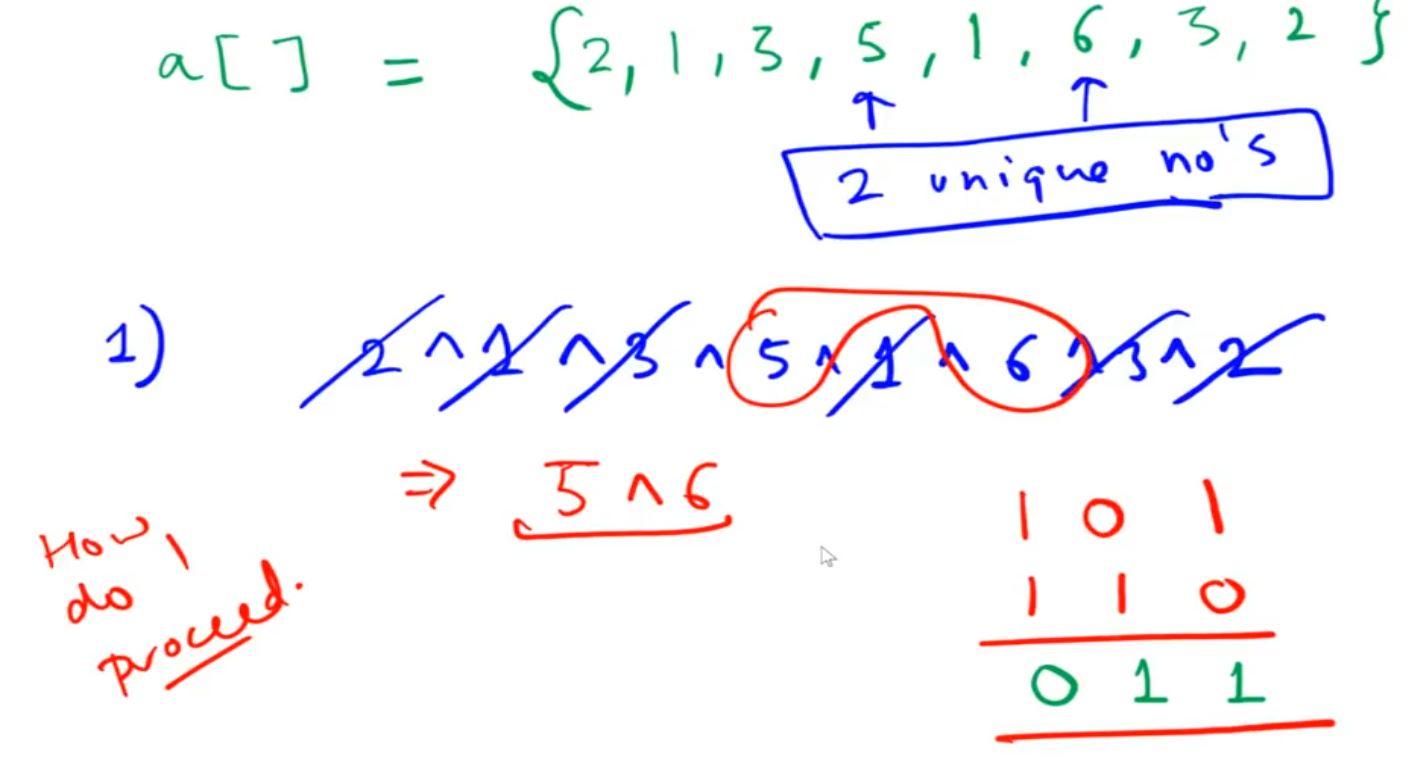 a[] = {2, 1, 3, 5, 1, 6, 3, 2}
2 unique no's
1) 2 ^ 1 ^ 3 ^ 5 ^ 1 ^ 6 ^ 3 ^ 2
⇒ 5 ^ 6
How I
do
proceed.
1 0 1
1 1 0
0 1 1